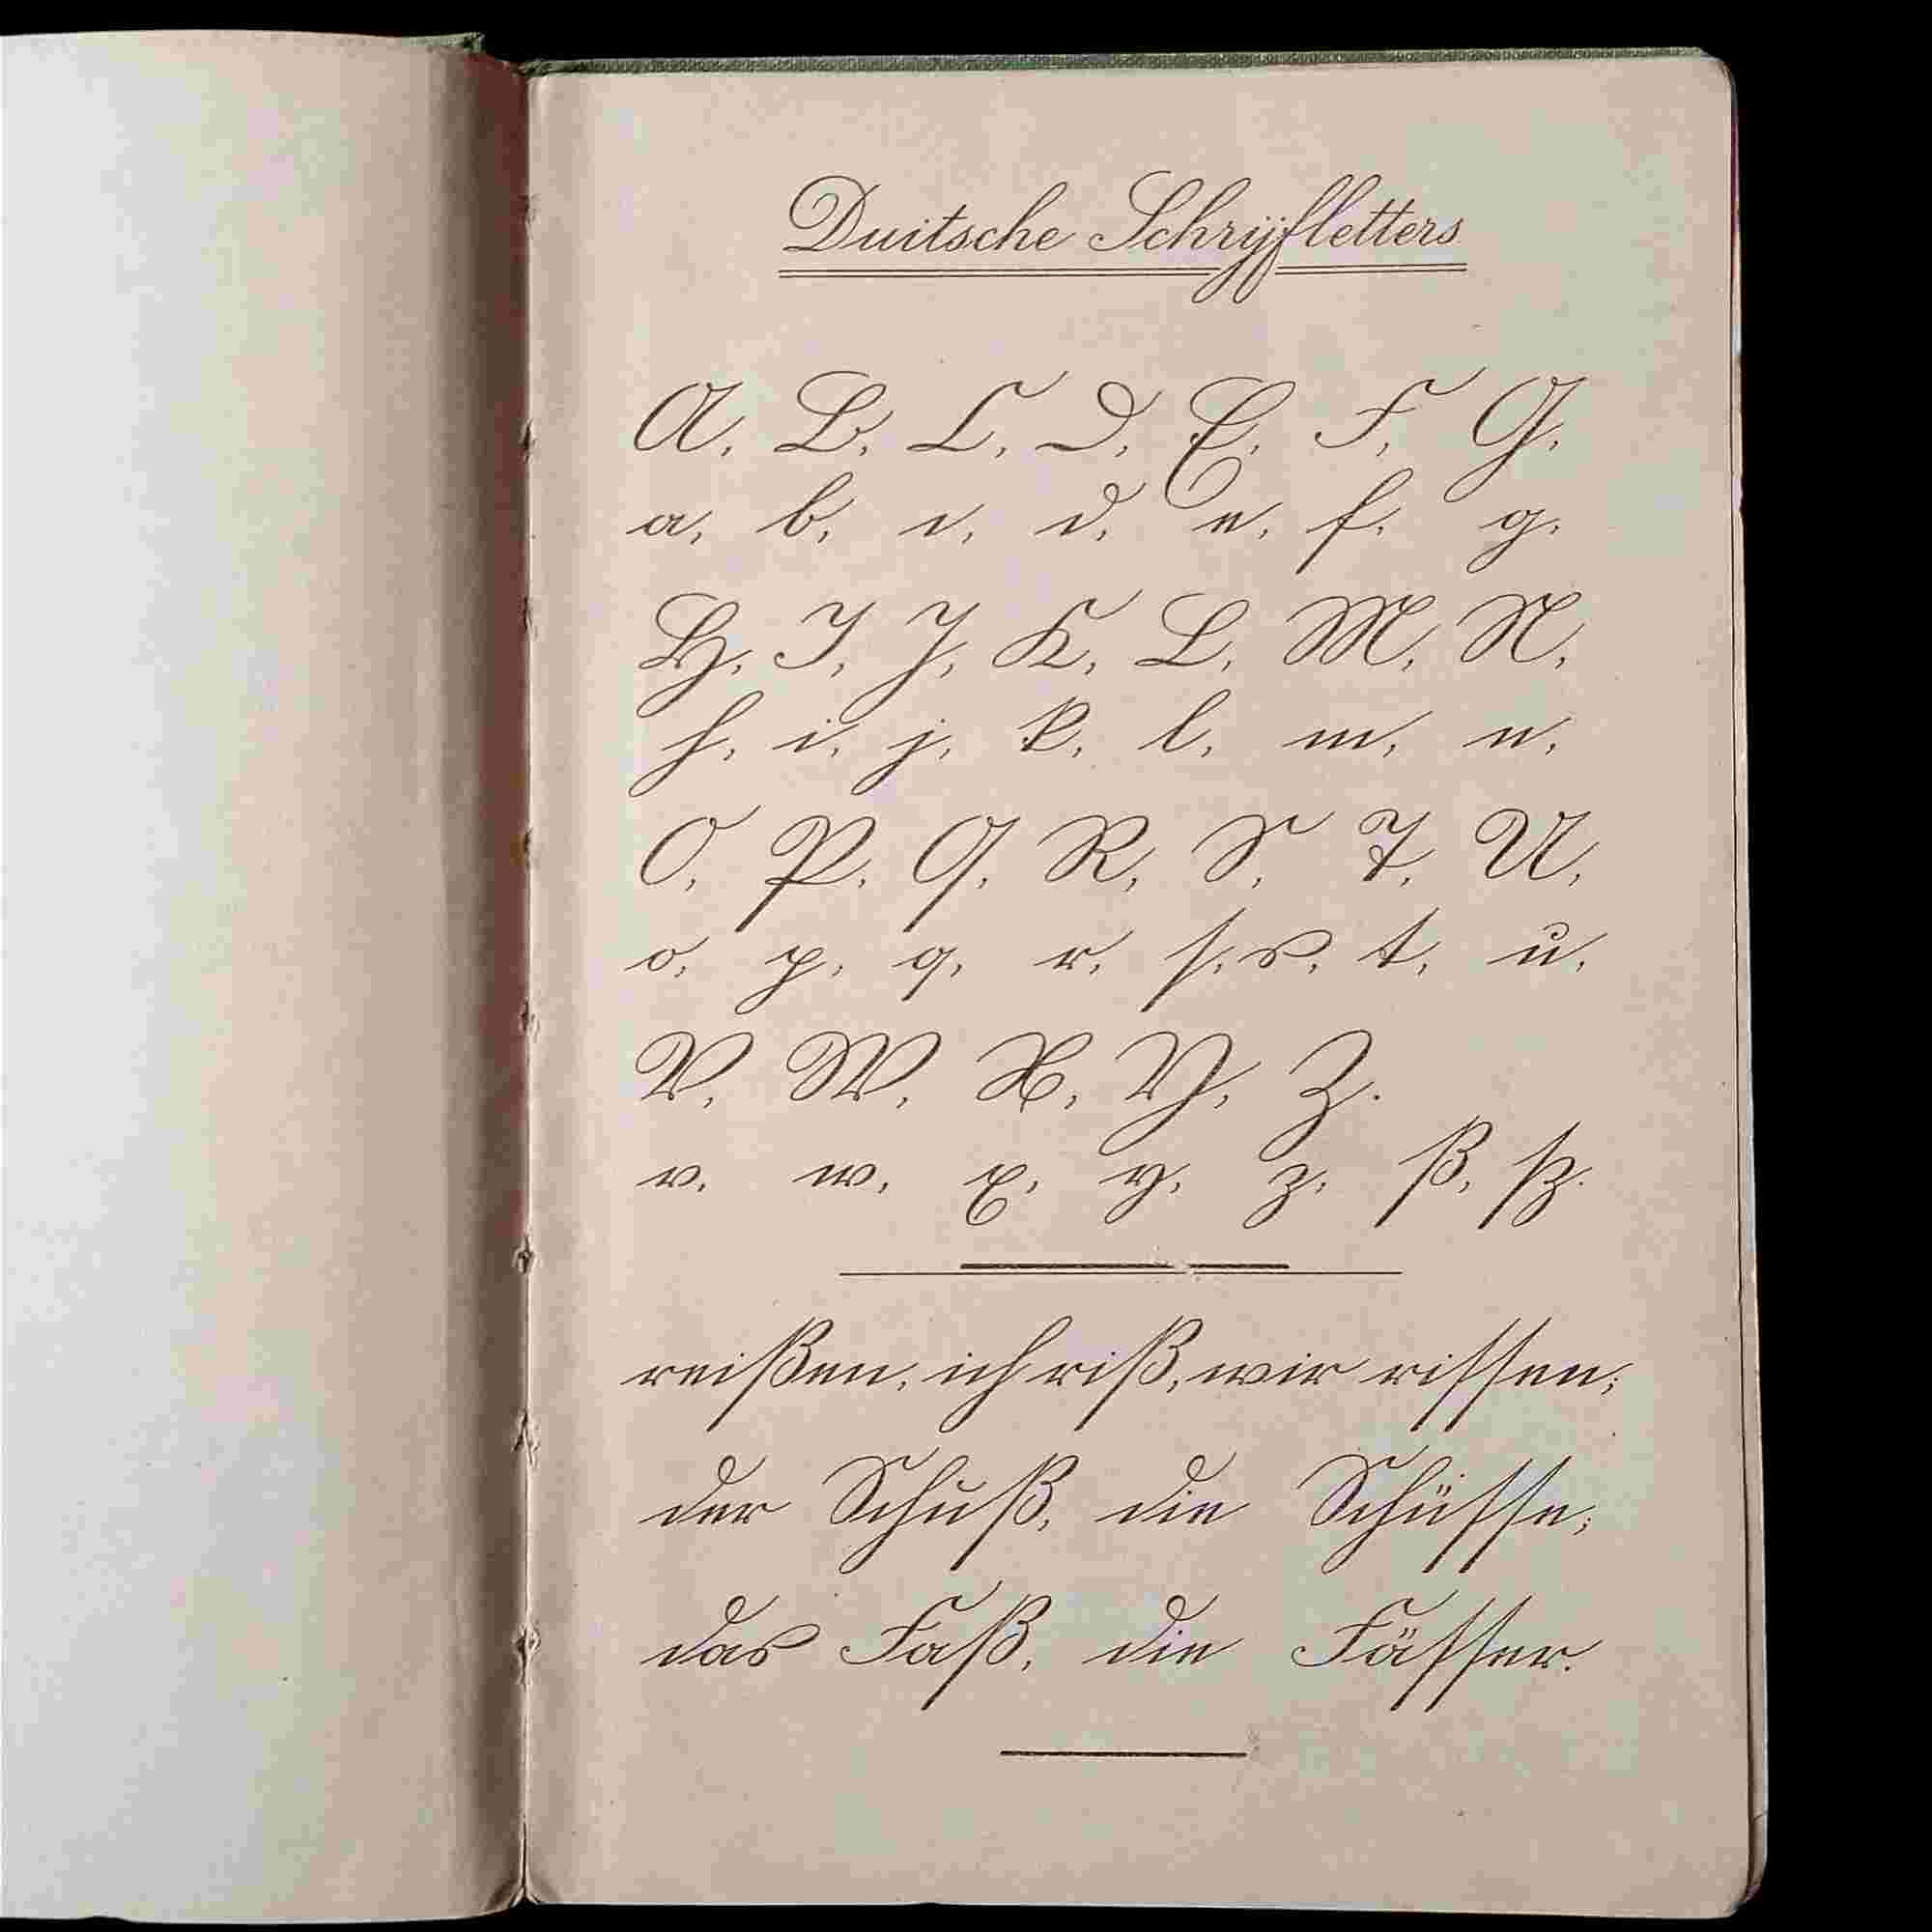 Duitsche Schrijfletters
A, B, C, D, E, F, G,
a, b, c, d, e, f, g,
H, I, J, K, L, M, N,
h, i, j, k, l, m, n,
O, P, Q, R, S, T, U,
o, p, q, r, ſ, s, t, u,
V, W, X, Y, Z.
v, w, x, y, z, ß, tz.
reißen, ich riß, wir riſſen;
der Schuß, die Schüſſe;
das Faß, die Fäſſer.